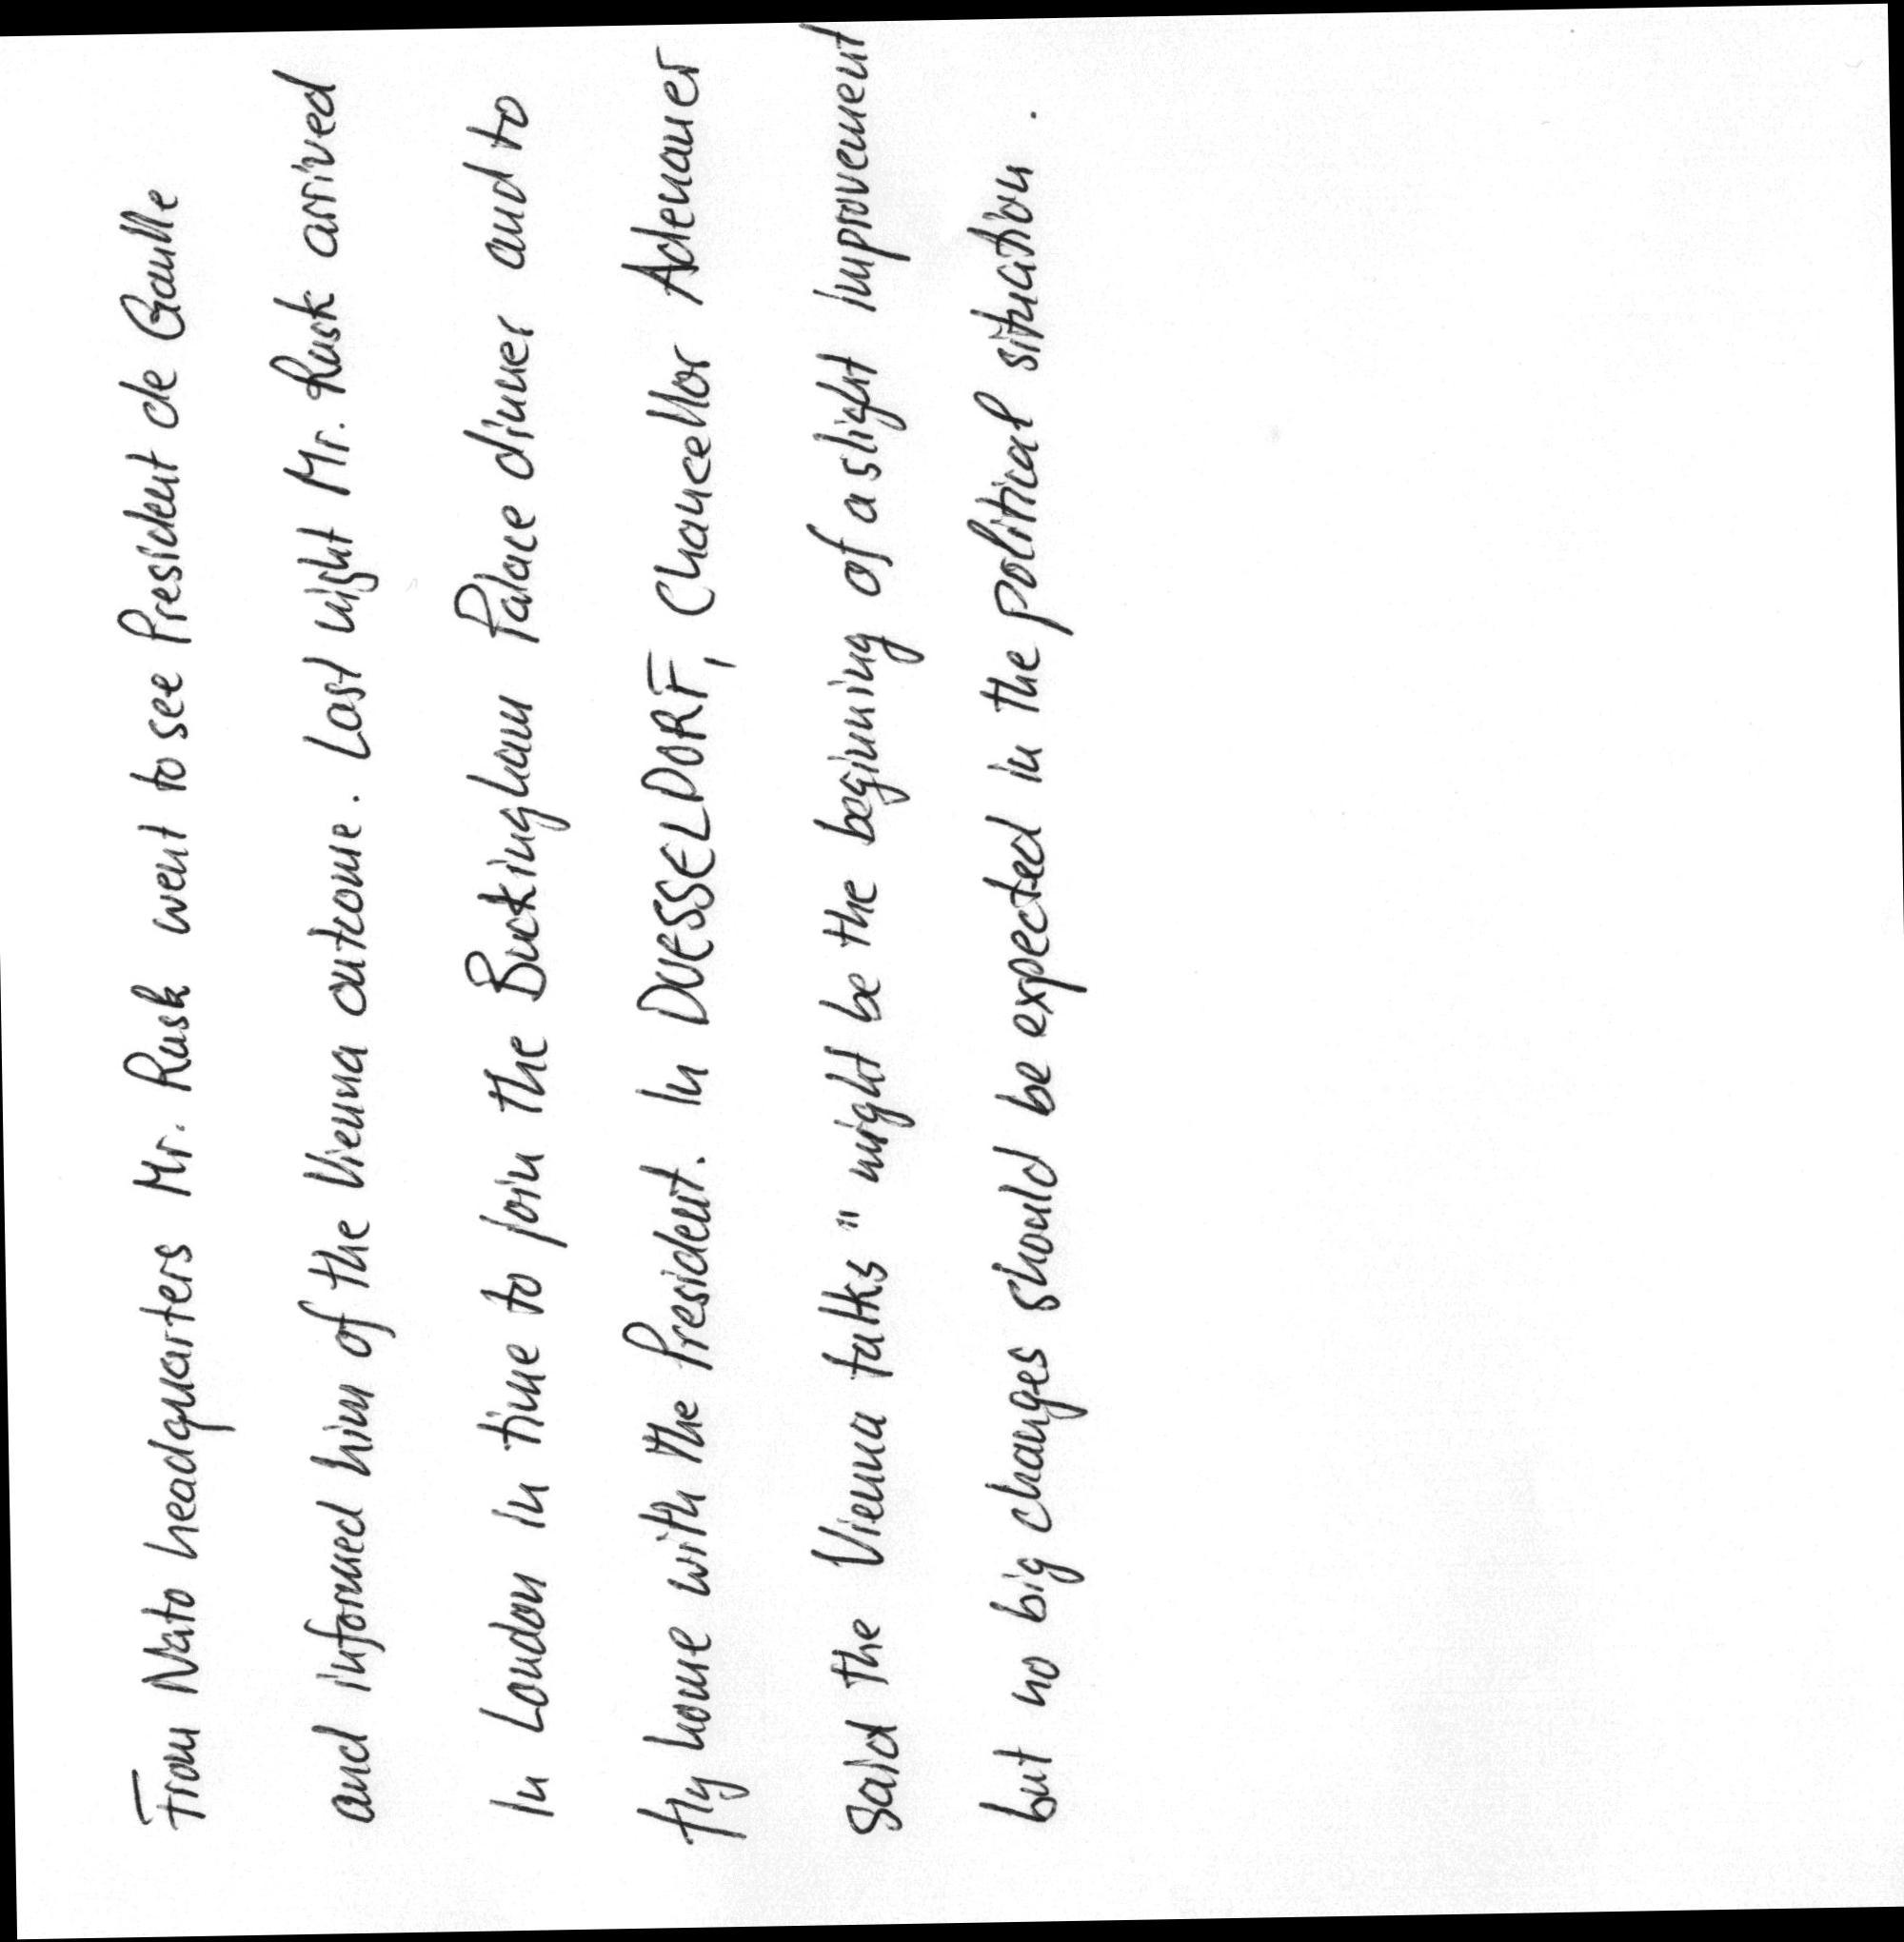 From Nato headquarters Mr. Rusk went to see President de Gaulle
and informed him of the Vienna outcome. Last night Mr. Rusk arrived
in London in time to join the Buckingham Palace dinner and to
fly home with the President. In DUESSELDORF, Chancellor Adenauer
said the Vienna talks " might be the beginning of a slight improvement
but no big changes should be expected in the political situation .